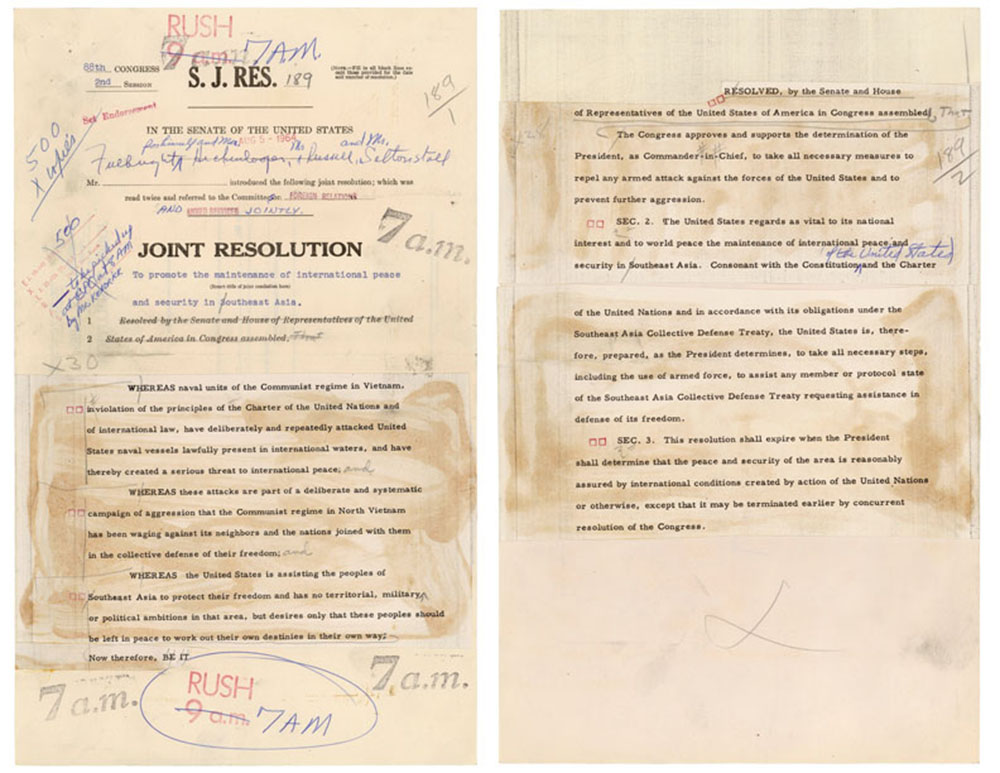 RUSH
9 a.m. 7 AM
7 a.m.
88th CONGRESS
2nd SESSION
S. J. RES. 189
189
1
Set Endorsement
500
X copies
IN THE SENATE OF THE UNITED STATES
AUG 5 - 1964
Fulbright, Hickenlooper, Russell, Saltonstall
Mr. introduced the following joint resolution; which was
read twice and referred to the Committees on FOREIGN RELATIONS
AND ARMED SERVICES JOINTLY.
500
7 a.m.
JOINT RESOLUTION
To promote the maintenance of international peace
(Insert title of joint resolution here)
and security in Southeast Asia.
1 Resolved by the Senate and House of Representatives of the United
2 States of America in Congress assembled, That
X30
WHEREAS naval units of the Communist regime in Vietnam,
inviolation of the principles of the Charter of the United Nations and
of international law, have deliberately and repeatedly attacked United
States naval vessels lawfully present in international waters, and have
thereby created a serious threat to international peace; and
WHEREAS these attacks are part of a deliberate and systematic
campaign of aggression that the Communist regime in North Vietnam
has been waging against its neighbors and the nations joined with them
in the collective defense of their freedom; and
WHEREAS the United States is assisting the peoples of
Southeast Asia to protect their freedom and has no territorial, military,
or political ambitions in that area, but desires only that these peoples should
be left in peace to work out their own destinies in their own way;
Now therefore, BE IT
7 a.m.
RUSH
9 a.m. 7 AM
7 a.m.
RESOLVED, by the Senate and House
of Representatives of the United States of America in Congress assembled, That
The Congress approves and supports the determination of the
President, as Commander-in-Chief, to take all necessary measures to
repel any armed attack against the forces of the United States and to
prevent further aggression.
189
2
SEC. 2. The United States regards as vital to its national
interest and to world peace the maintenance of international peace and
of the United States
security in Southeast Asia. Consonant with the Constitution and the Charter
of the United Nations and in accordance with its obligations under the
Southeast Asia Collective Defense Treaty, the United States is, there-
fore, prepared, as the President determines, to take all necessary steps,
including the use of armed force, to assist any member or protocol state
of the Southeast Asia Collective Defense Treaty requesting assistance in
defense of its freedom.
SEC. 3. This resolution shall expire when the President
shall determine that the peace and security of the area is reasonably
assured by international conditions created by action of the United Nations
or otherwise, except that it may be terminated earlier by concurrent
resolution of the Congress.